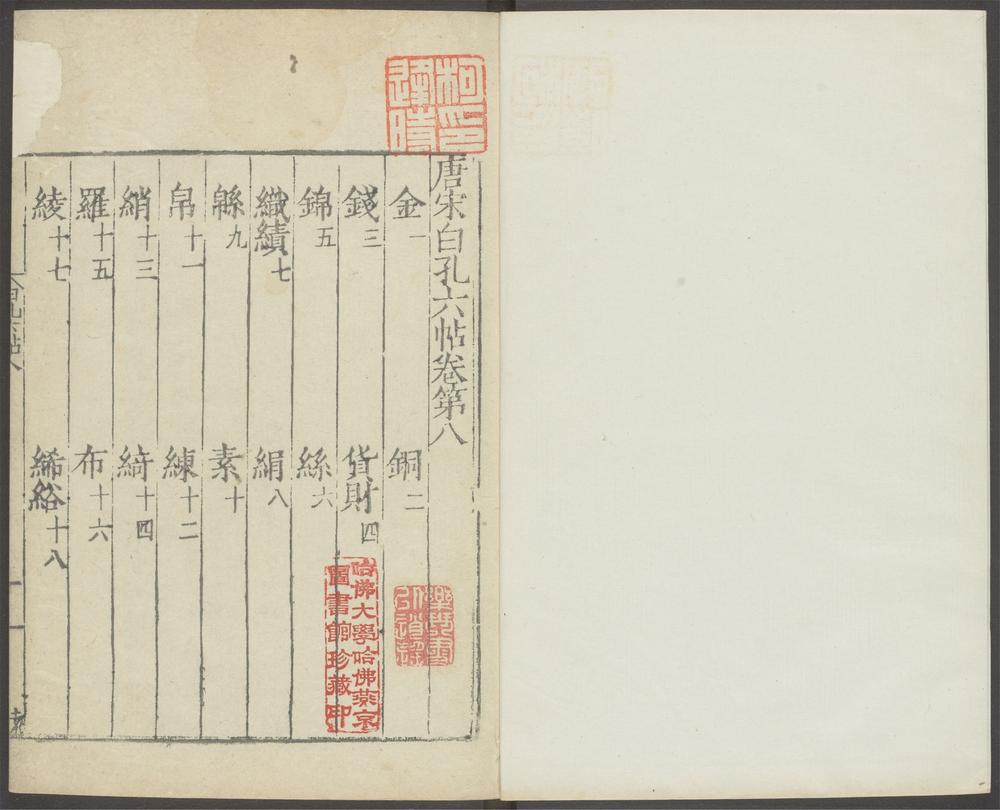 唐宋白孔六帖卷第八
金一 銅二
錢三 貨財四
錦五 絲六
織績七 絹八
緜九 素十
帛十一 練十二
綃十三 綺十四
羅十五 布十六
綾十七 絺綌十八
哈佛大學哈佛燕京
圖書館珍藏印